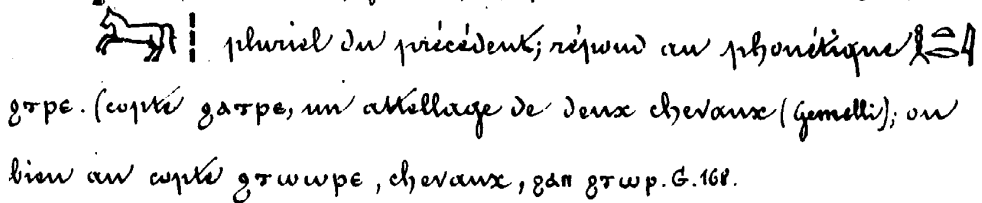 𓃗𓏪 pluriel du précédent; répond au phonétique 𓎛𓏏𓂋𓇋
ϩⲧⲣⲉ. (copte ϩⲁⲧⲣⲉ, un attellage de deux chevaux (Gemelli); ou
bien au copte ϩⲧⲱⲱⲣⲉ, chevaux, ϩⲁⲛ ϩⲧⲱⲣ. G. 168.